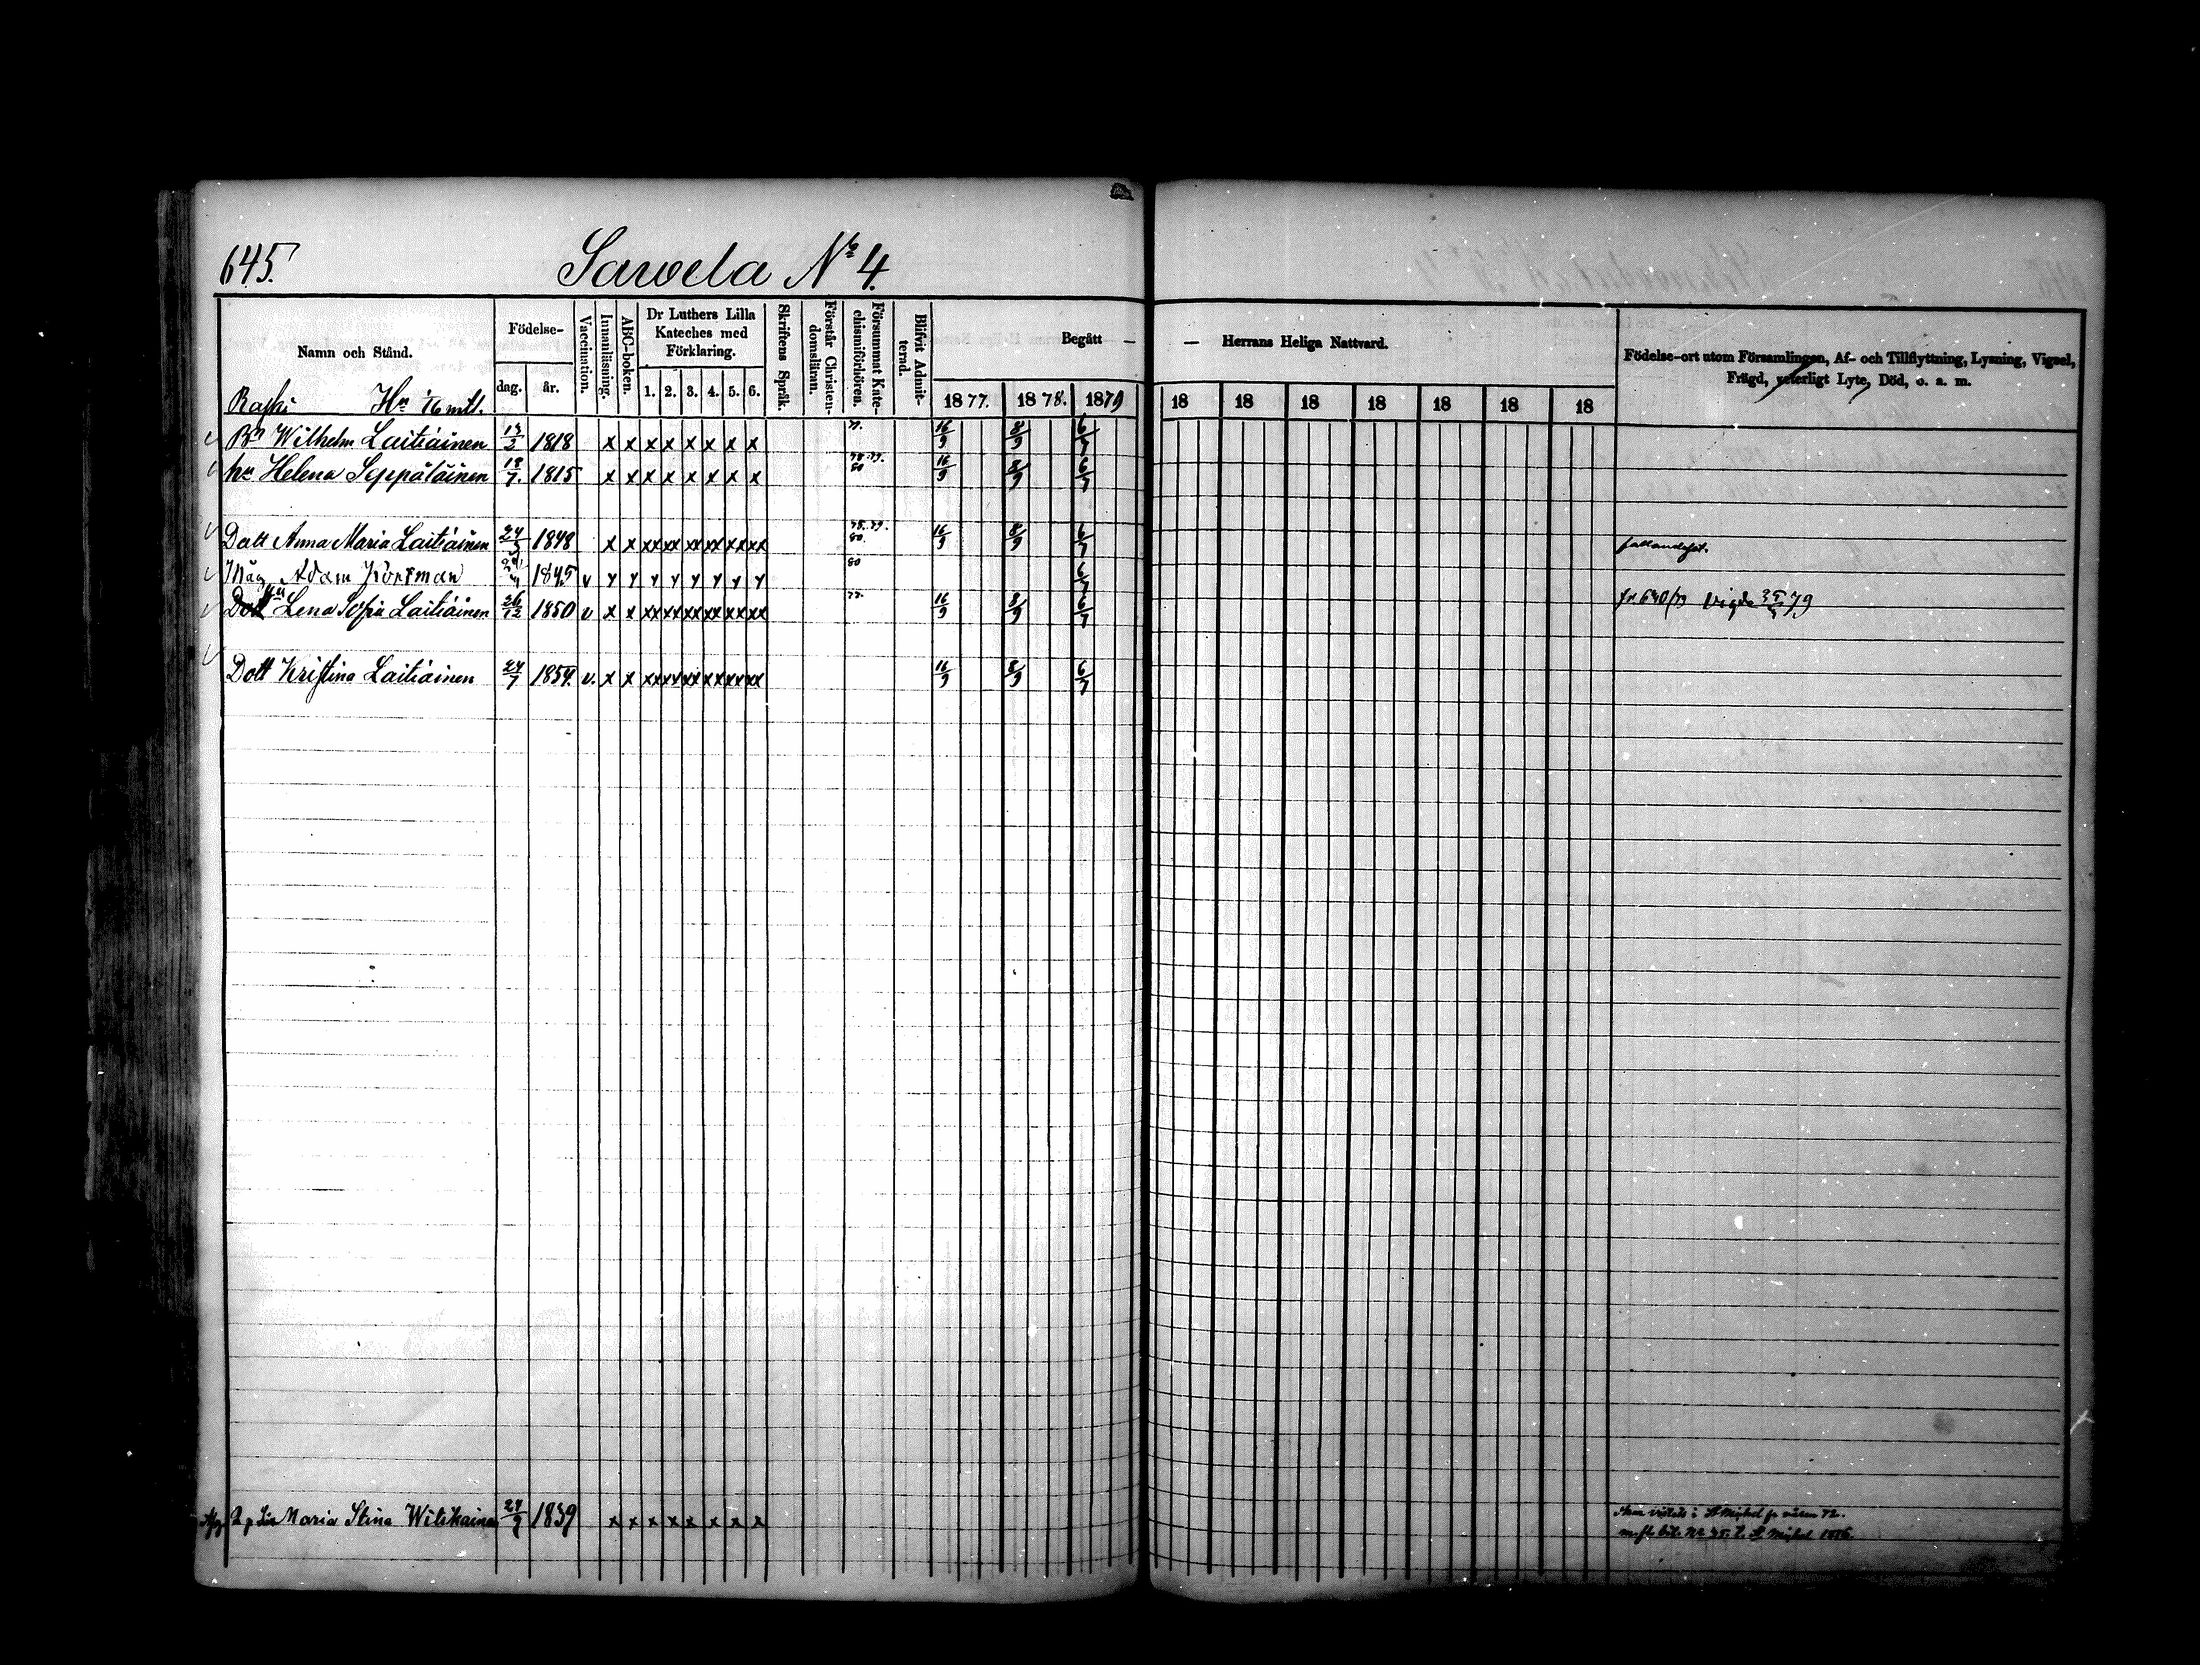 645.
Sawela No 4.
Namn och Stånd.
Födelse-
dag.
år.
Vaccination.
Innanläsning.
ABC-boken.
Dr Luthers Lilla
Kateches med
Förklaring.
1. 2. 3. 4. 5. 6.
Skriftens Språk.
Förstår Christen-
domsläran.
Försummat Kate-
chismiförhören.
Blifvit Admit-
terad.
Begått —
— Herrans Heliga Nattvard.
Födelse-ort utom Församlingen, Af- och Tillflyttning, Lysning, Vigsel,
Frägd, yeterligt Lyte, Död, o. a. m.
1877. 1878. 1879 18 18 18 18 18 18 18
Bn Wilhelm Laitiainen 13/2 1818 x x x x x x x x 16/9 8/9 6/7
hu Helena Seppäläinen 18/7. 1815 x x x x x x x x 78. 79. 80 16/9 8/9 6/7
Dott Anna Maria Laitiäinen 24/3 1848 x x xx xx xx xx xx xx 78. 79. 80. 16/9 8/9 6/7 fallandesot.
Måg Adam Kortman 1845 v y y y y y y y y 80 6/7
hu Lena Sofia Laitiäinen 26/12 1850 v x x xx xx xx xx xx xx 16/9 8/9 6/7 fr 640/79 Vigde 25/5 79
Dott Kristina Laitiäinen 27/7 1854. v. x x xx xx xx xx xx xx 16/9 8/9 6/7
Maria Stina Witikaine 27/9 1839 x x x x x x x x
St Michel 1886.